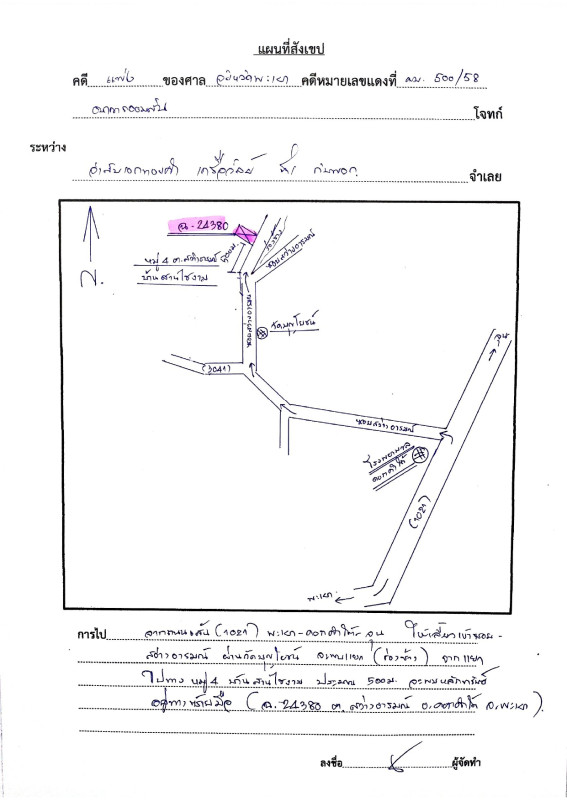 แผนที่สังเขป
คดี แพ่ง ของศาล จังหวัดพะเยา คดีหมายเลขแดงที่ ผบ. 500/58
ธนาคารออมสิน โจทก์
ระหว่าง
จำเลย
ฉ. 24380
หมู่ 4 ต.สว่างอารมณ์
บ้านสานไชงาม
500 ม.
ซอยสว่างอารมณ์
น.
วัดบุญโยชน์
(3041)
จุน
ซอยสว่างอารมณ์
โรงพยาบาล
ดอกคำใต้
(1021)
พะเยา
การไป จากถนนเส้น (1021) พะเยา-ดอกคำใต้-จุน ให้เลี้ยวเข้าซอย-
สว่างอารมณ์ ผ่านวัดบุญโยชน์ จะพบแยก (ร่องช้าง) จากแยก
ไปทาง หมู่ 4 บ้านสานไชงาม ประมาณ 500 ม. จะพบหลักทรัพย์
อยู่ทางซ้ายมือ (ฉ. 24380 ต. สว่างอารมณ์ อ.ดอกคำใต้ จ.พะเยา).
ลงชื่อ ผู้จัดทำ